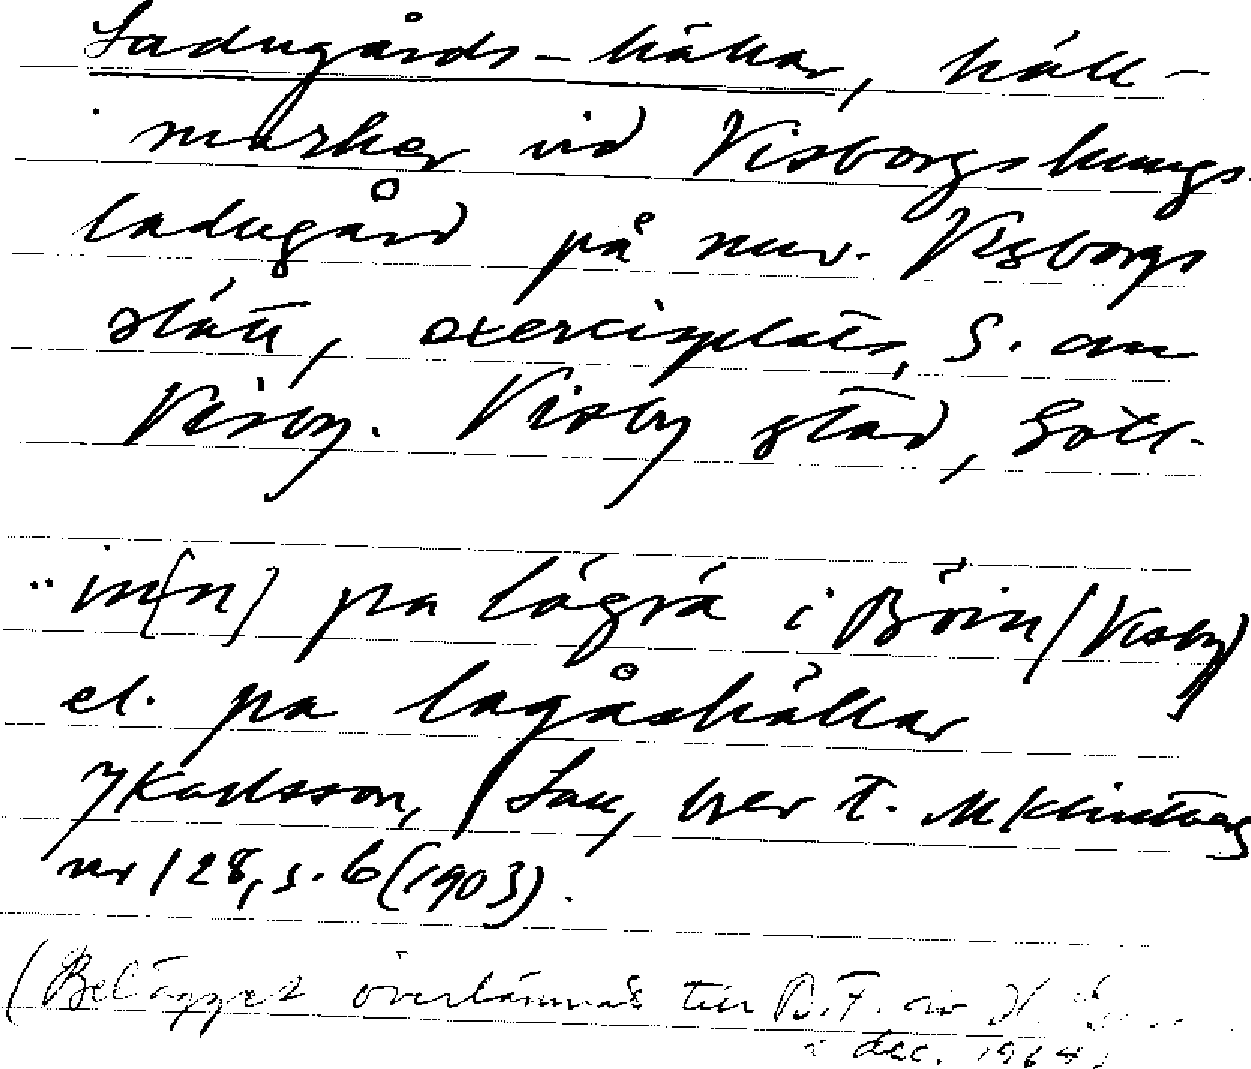 Ladugårds-hällar, häll-
marker vid Visborgs kungs-
ladugård på nuv. Visborgs
slätt, exercisplats, S. om
Visby. Visby stad, Gotl.
.. in[n] pa lågrå i Böin (Visby)
el. pa lagåshällar
Karlsson, Lau, brev t. M Klintberg
nr 128, s. 6 (1903).
(Belägget överlämnat till
dec. 1964)